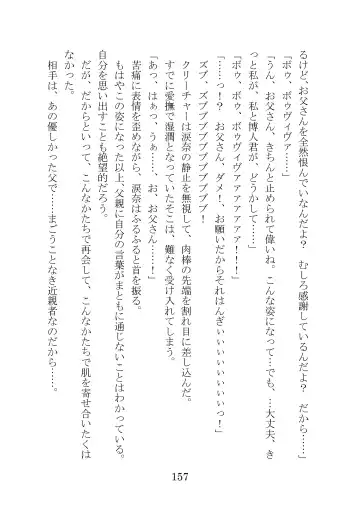 るけど、お父さんを全然恨んでいなんだよ？　むしろ感謝しているんだよ？　だから……」
「ボゥ、ボゥヴィヴァ……」
「うん、お父さん、きちんと止められて偉いね。こんな姿になって…でも、…大丈夫、き
っと私が、私と博人君が、どうかして……」
「ボゥ、ボゥ、ボゥヴィヴァァァァァァァ！！！」
「……っ！？　お父さん、ダメ！、お願いだからそれはんぎぃぃぃぃぃぃぃっ！」
ズブ、ズブブブブブブブブブ！
クリーチャーは涙奈の静止を無視して、肉棒の先端を割れ目に差し込んだ。
すでに愛撫で湿潤となっていたそこは、難なく受け入れてしまう。
「あっ、はぁっ、うぁ……、お、お父さん……！」
苦痛に表情を歪めながら、涙奈はふるふると首を振る。
もはやこの姿になった以上、父親に自分の言葉がまともに通じないことはわかっている。
自分を思い出すことも絶望的だろう。
だが、だからといって、こんなかたちで再会して、こんなかたちで肌を寄せ合いたくは
なかった。
相手は、あの優しかった父で……まごうことなき近親者なのだから……。
157